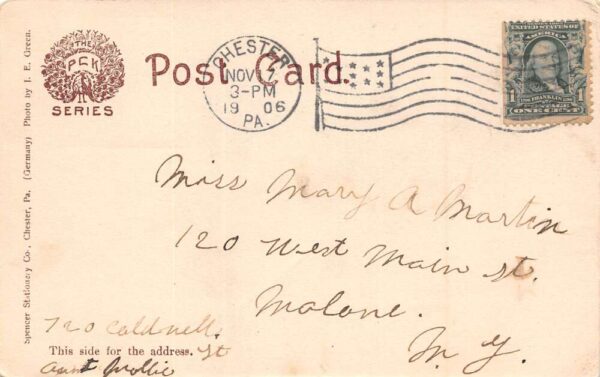 THE
P C K
SERIES
Post Card.
CHESTER
NOV 7
3-PM
19 06
PA.
UNITED STATES OF
AMERICA
1
FRANKLIN
ONE CENT
Miss Mary A Martin
120 West Main st.
Malone.
N. Y.
720 Caldwell
St
This side for the address.
Aunt Mollie
Spencer Stationery Co., Chester, Pa. (Germany) Photo by J. E. Green.